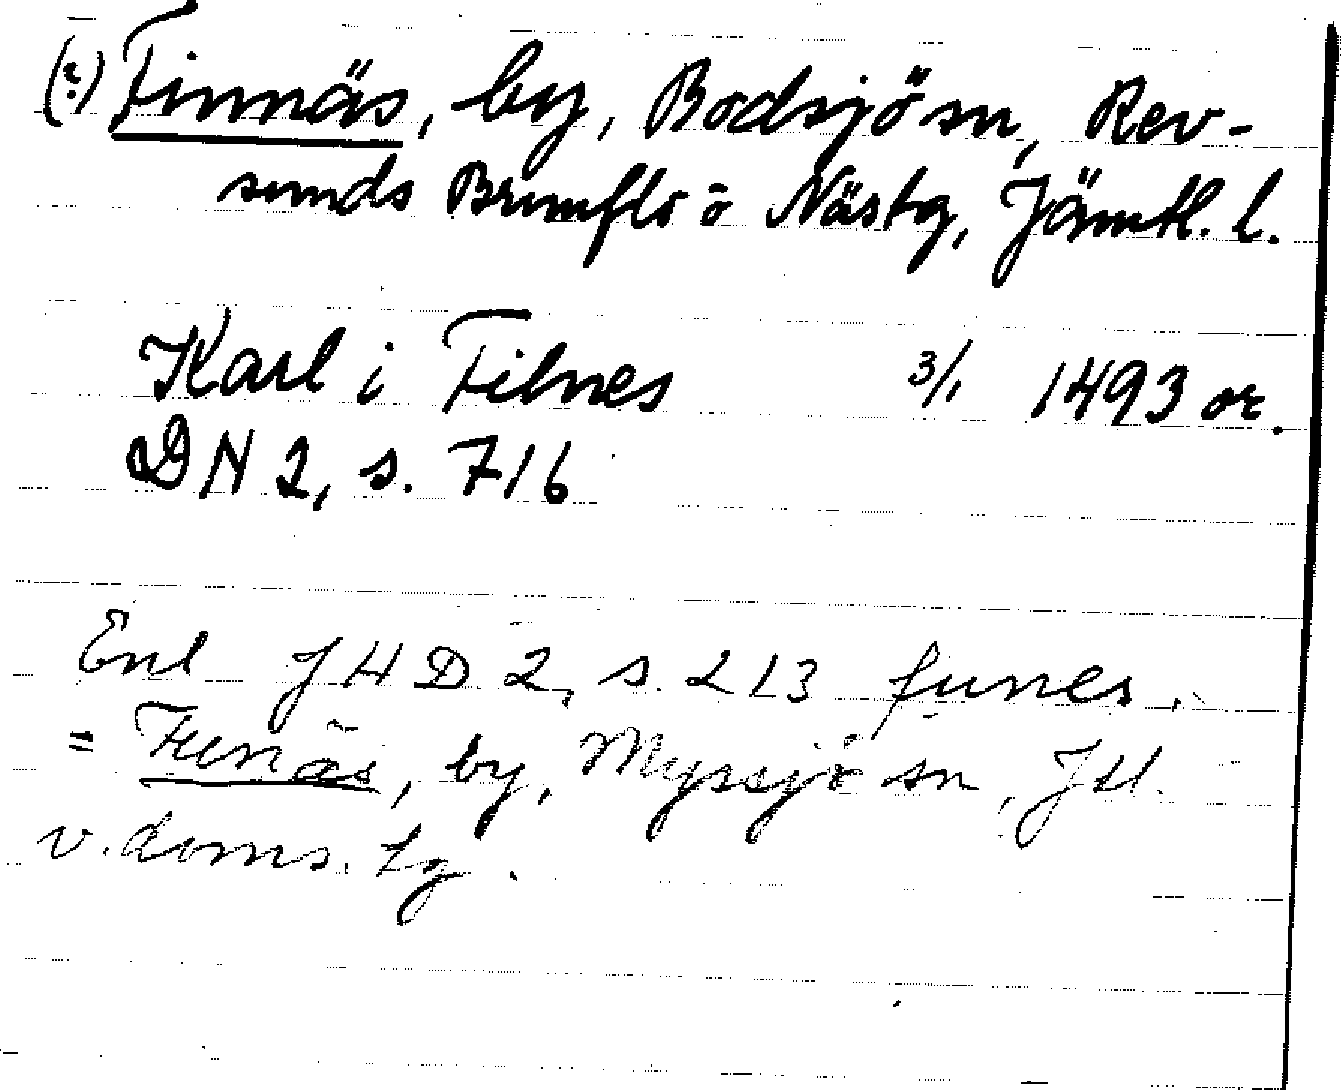 (?) Finnäs, by, Bodsjö sn, Rev-
sunds Brunflo o Näs tg, Jämtl. l.
Karl i Filnes 3/1 1493 or.
DN 2, s. 716
Enl JHD 2, s. 213 funes.
= Funäs, by, Myssjö sn, Jtl.
v. doms. tg.